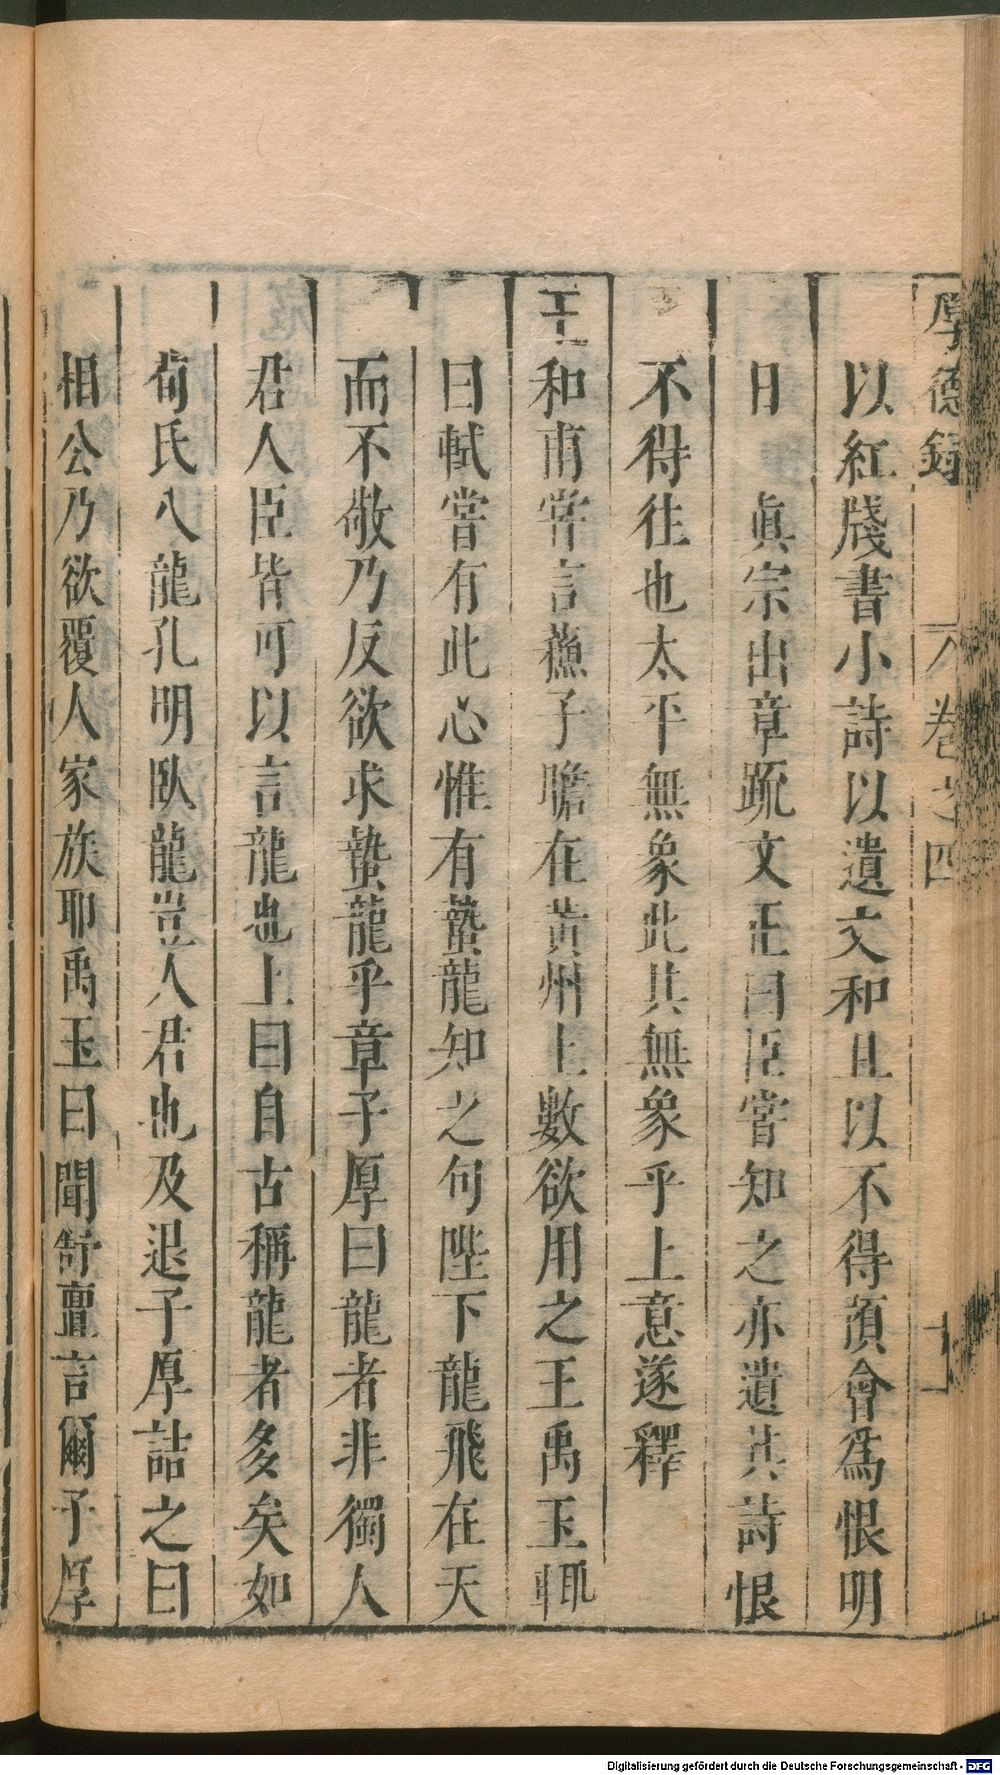 厚德錄 卷之四 十一
以紅牋書小詩以遺文和且以不得預會爲恨明
日 眞宗出章疏文正曰臣嘗知之亦遺其詩恨
不得往也太平無象此其無象乎上意遂釋
王和甫嘗言蘇子瞻在黃州上數欲用之王禹玉輒
曰軾嘗有此心惟有蟄龍知之句陛下龍飛在天
而不敬乃反欲求蟄龍乎章子厚曰龍者非獨人
君人臣皆可以言龍也上曰自古稱龍者多矣如
荀氏八龍孔明臥龍豈人君也及退子厚詰之曰
相公乃欲覆人家族耶禹玉曰聞舒亶言爾子厚
Digitalisierung gefördert durch die Deutsche Forschungsgemeinschaft - DFG